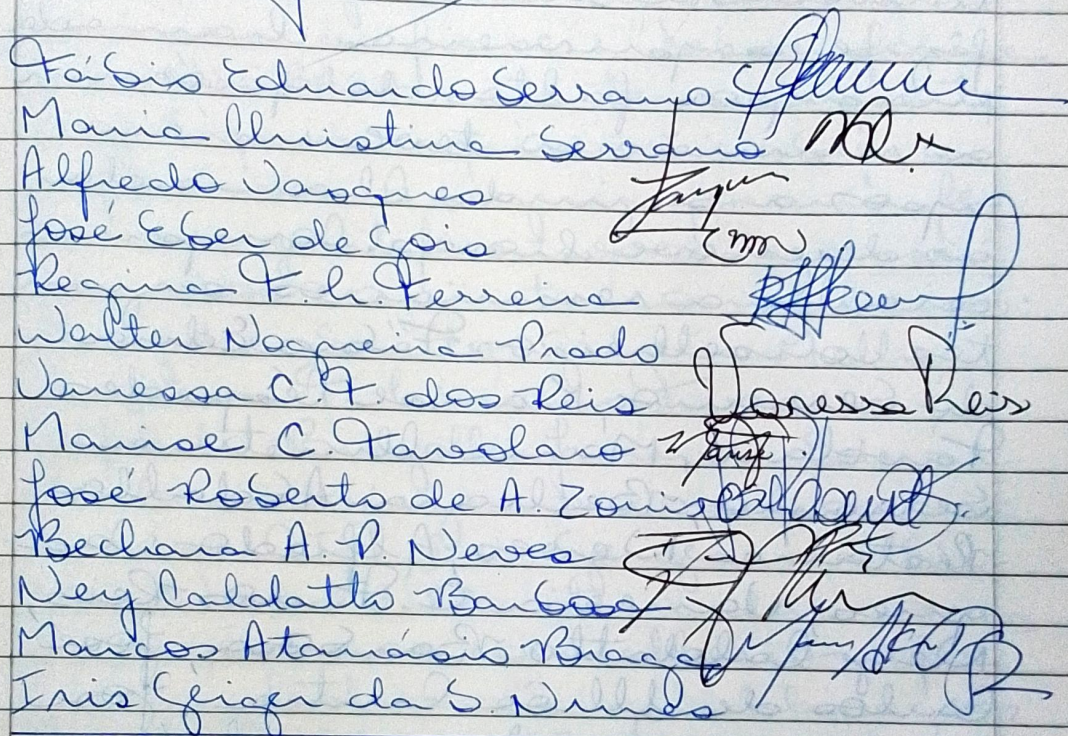 Fábio Eduardo Serrano
Maria Christina Serrano
Alfredo Vasques
José Eber de Gois
Regina F. G. Ferreira
Walter Nogueira Prado
Vanessa C. F. dos Reis Vanessa Reis
Marise C. Tavolaro Marise
José Roberto de A.
Bechara A. P. Neves
Ney Caldatto Barbosa
Marcos Atanásio Braga
Iris Geiger da S. Nunes